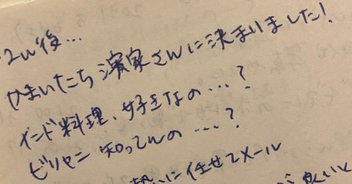 後…
かまいたち 濱家さんに決まりました！
インド料理、好きなの…？
ビリヤニ 知ってんの…？
勢いに任せてメール